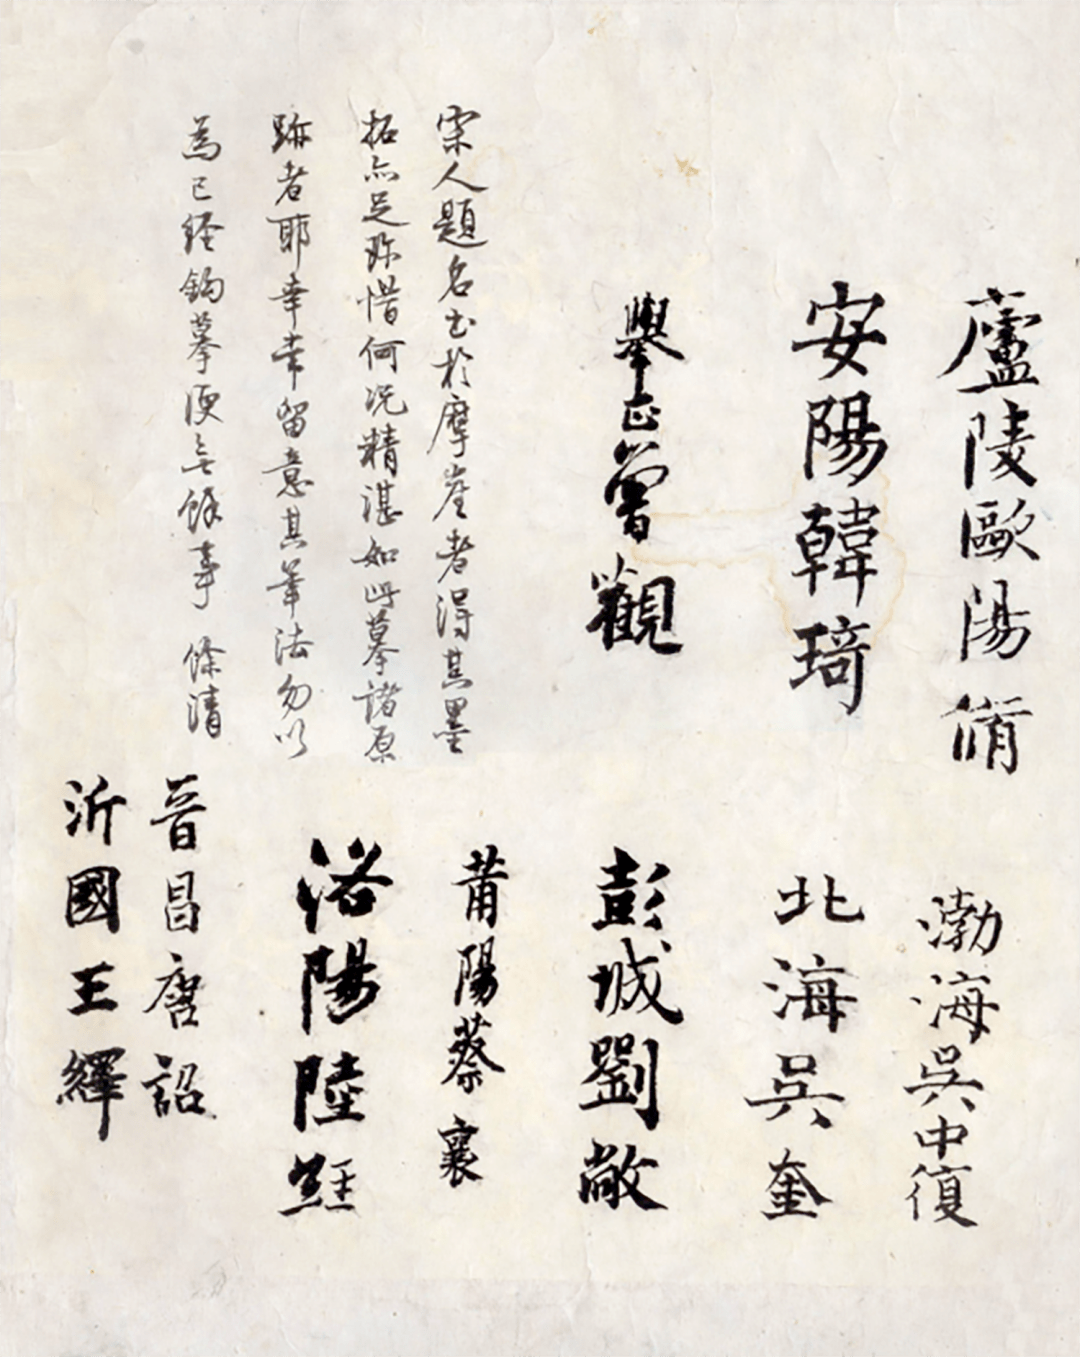 廬陵歐陽脩
安陽韓琦
舉正曾觀
宋人題名書於摩崖者得其墨
拓亦足珎惜何況精湛如此摹諸原
跡者耶幸幸留意其筆法勿以
為已經鈎摹便無餘事 條清
渤海吳中復
北海吳奎
彭城劉敞
莆陽蔡襄
洛陽陸經
晉昌唐詔
沂國王繹